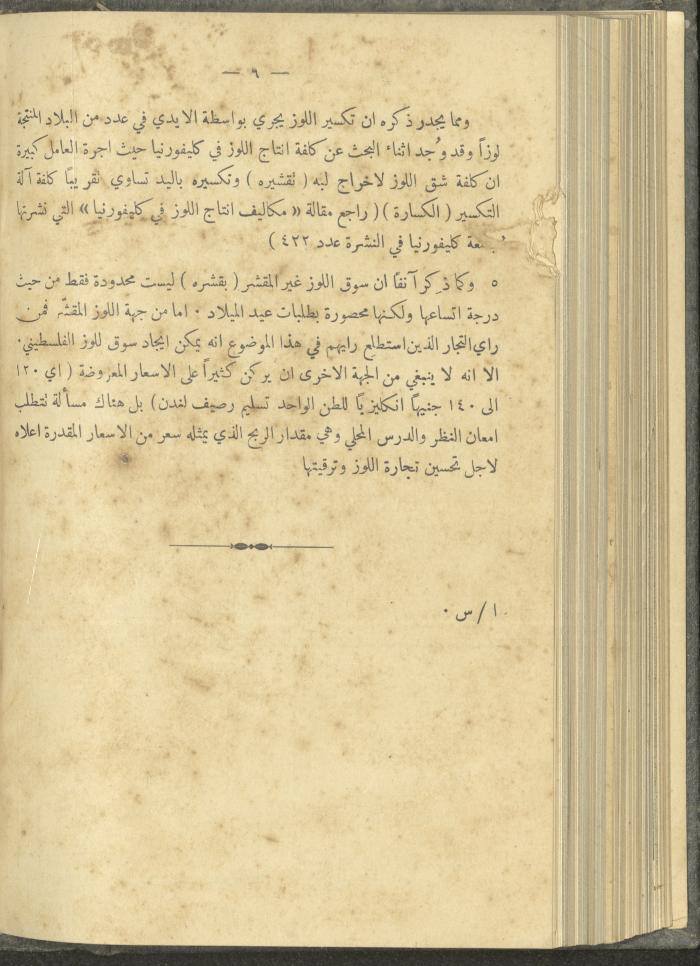 — ٩ —
ومما يجدر ذكره ان تكسير اللوز يجري بواسطة الايدي في عدد من البلاد المنتجة
لوزاً وقد وُجد اثناء البحث عن كلفة انتاج اللوز في كليفورنيا حيث اجرة العامل كبيرة
ان كلفة شق اللوز لاخراج لبه ( تقشيره ) وتكسيره باليد تساوي تقريباً كلفة آلة
التكسير ( الكسارة ) ( راجع مقالة « مكاليف انتاج اللوز في كليفورنيا » التي نشرتها
كليفورنيا في النشرة عدد ٤٢٢ )
٥ وكما ذكر آنفاً ان سوق اللوز غير المقشر ( بقشره ) ليست محدودة فقط من حيث
درجة اتساعها ولكنها محصورة بطلبات عيد الميلاد ٠ اما من جهة اللوز المقشّر فمن
راي التجار الذين استطلع رايهم في هذا الموضوع انه يمكن ايجاد سوق للوز الفلسطيني ٠
الا انه لا ينبغي من الجهة الاخرى ان يركن كثيراً على الاسعار المعروضة ( اي ١٢٠
الى ١٤٠ جنيهاً انكليزياً للطن الواحد تسليم رصيف لندن ) بل هناك مسألة تتطلب
امعان النظر والدرس المحلي وهي مقدار الربح الذي يمثله سعر من الاسعار المقدرة اعلاه
لاجل تحسين تجارة اللوز وترقيتها
ا / س ٠